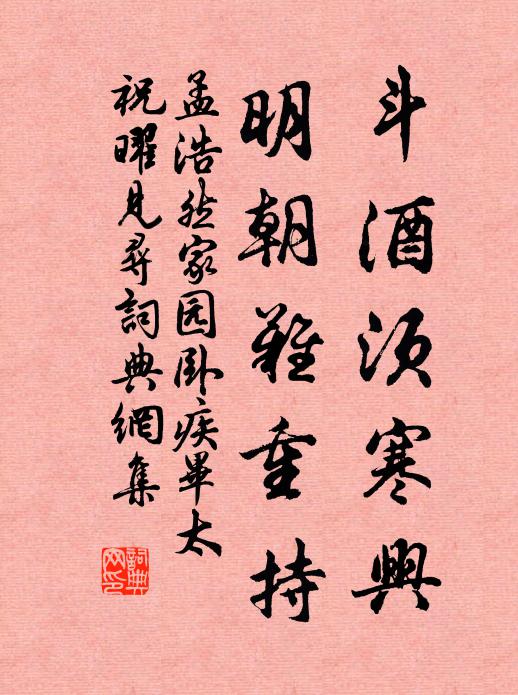 斗酒须寒興
明朝難重持
孟浩然家园卧疾畢太
祝曜見尋詞典網集
詞典
网印